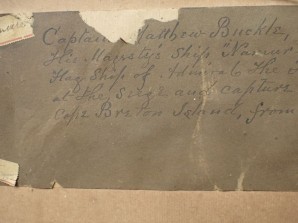 Captain Matthew Buckle,
His Majesty's Ship Namur
Flag Ship of Admiral the
at the Siege and capture
Cape Breton Island, from